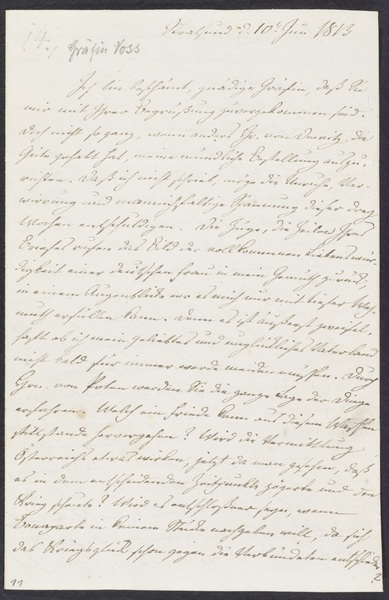 Stralsund d. 10t Jun 1813
Gräfin Voss
Ich bin beschämt, gnädige Gräfin, daß Sie
mir mit Ihrer Begrüßung zuvorgekommen sind.
Doch nicht so ganz, wenn anders Hr. von Dewitz die
Güte gehabt hat, meine mündliche Bestellung auszu-
richten. Daß ich nicht schrieb, möge die Unruhe, Ver-
wirrung und mannichfaltige Spannung dieser drey
Wochen entschuldigen. Die Züge, die Zeilen Ihres
Briefes rufen das Bild der vollkommenen Liebenswür-
digkeit einer deutschen Frau in mein Gemüth zurück,
in einem Augenblicke wo es mich nur mit tiefer Weh-
muth erfüllen kann. Denn es ist äußerst zweifel-
haft ob ich mein geliebtes und unglückliches Vaterland
nicht bald für immer werde meiden müssen. Durch
Hrn. von Peten werden Sie die ganze Lage der Dinge
erfahren. Welch ein Friede kann aus diesem Waffen-
stillstande hervorgehen? Wird die Vermittlung
Österreichs etwas wirken, jetzt da man gesehen, daß
es in dem entscheidenden Zeitpunkte zögerte und den
Krieg scheute? Wird es entschloßner seyn, wenn
Bonaparte in keinem Stücke nachgeben will, da sich
das Kriegsglück schon gegen die Verbündeten entschieden